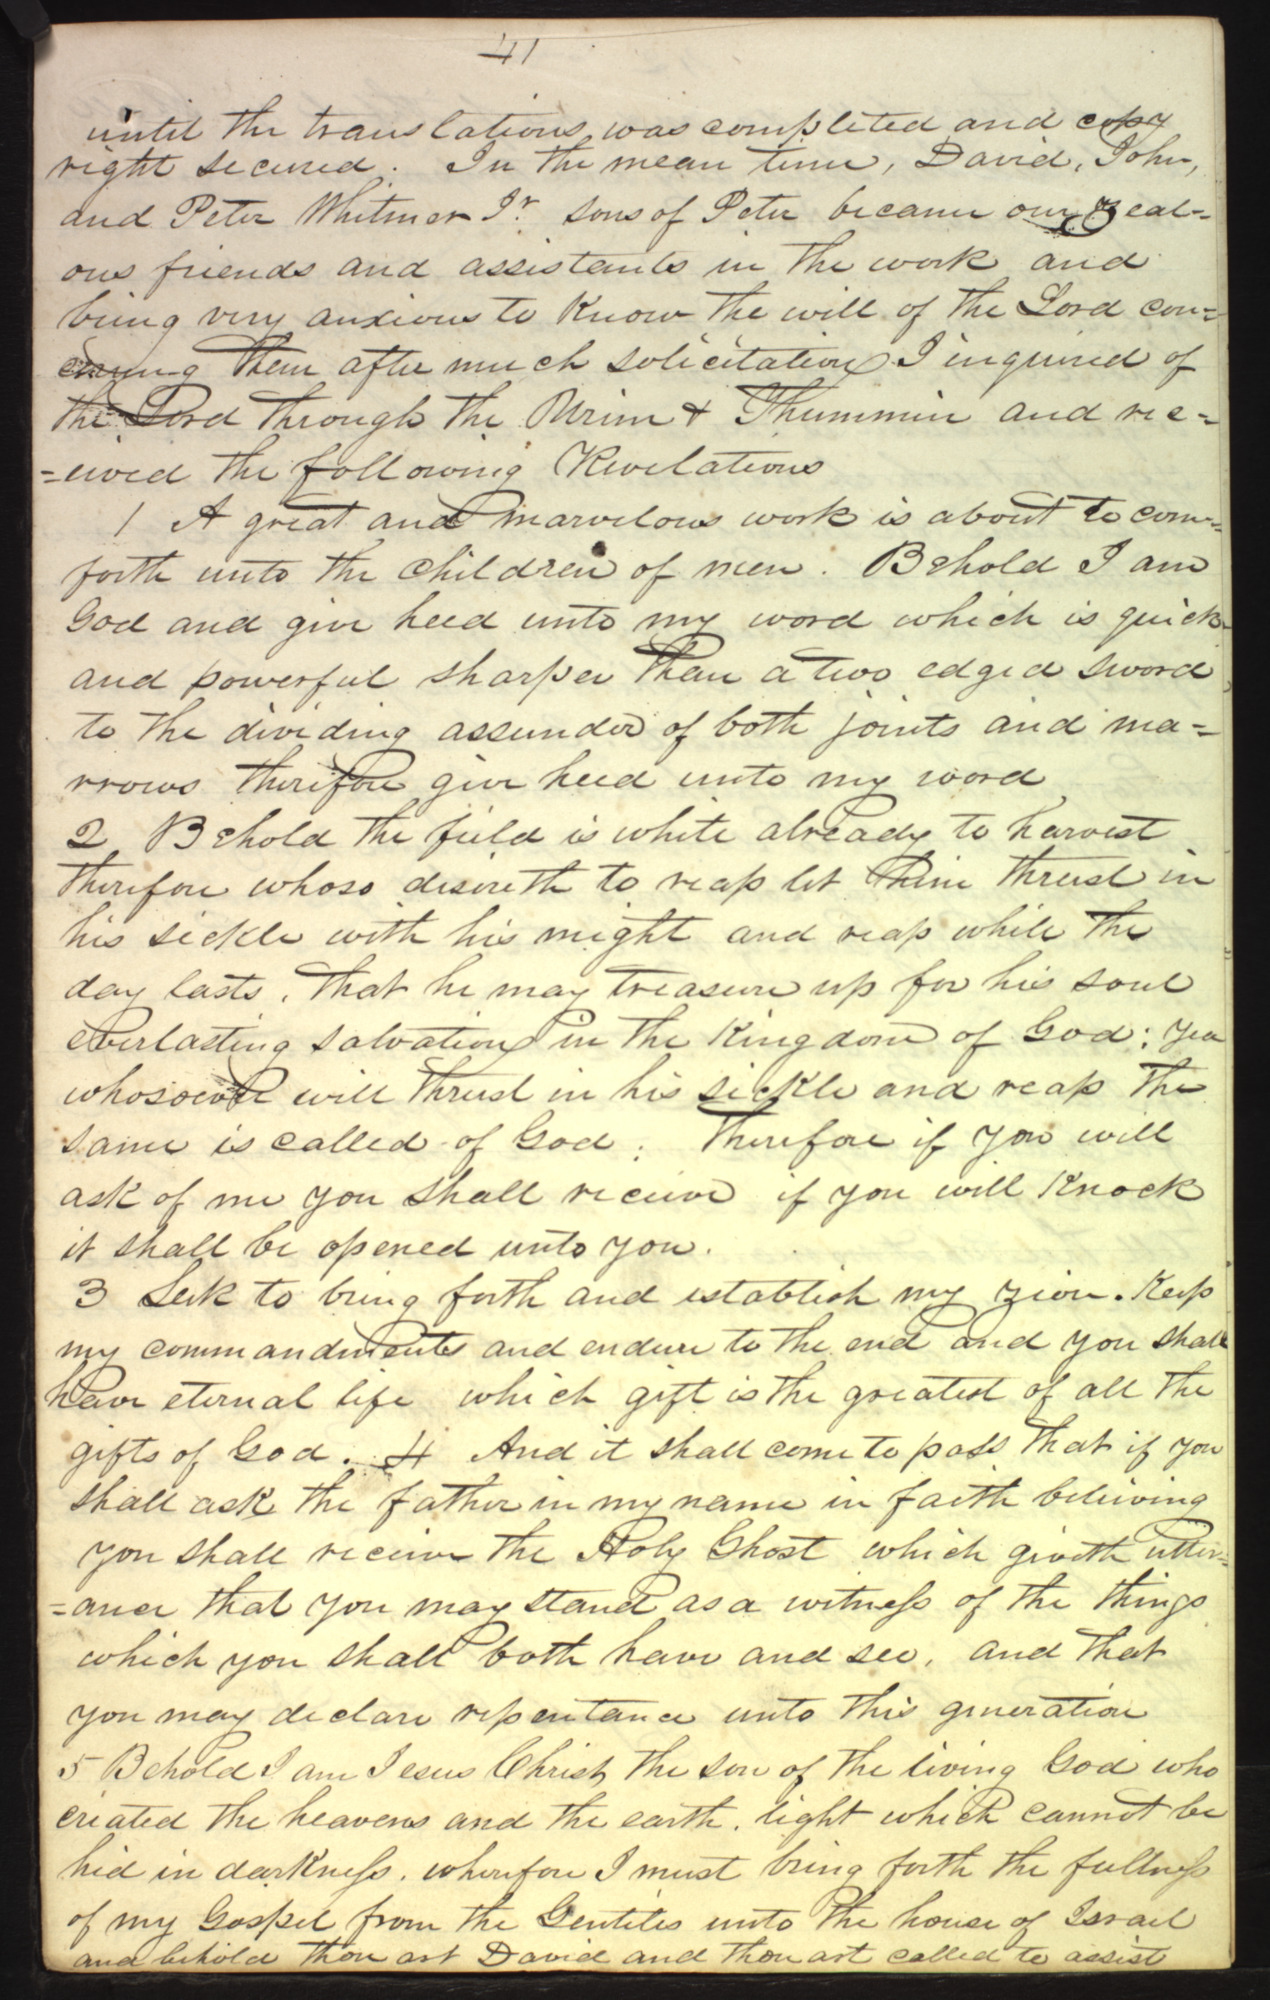 41
until the translations was completed and copy
right secured. In the mean time, David, John,
and Peter Whitmer Jr sons of Peter became our zeal=
ous friends and assistants in the work and
being very anxious to Know the will of the Lord con=
cerning them after much solicitation I inquired of
the Lord through the Urim & Thummim and rec=
=eived the following Revelations
1 A great and marvelous work is about to come
forth unto the children of men. Behold I am
God and give heed unto my word which is quick
and powerful sharper than a two edged sword
to the dividing assunder of both joints and ma=
rrows therefore give heed unto my word
2 Behold the field is white already to harvest
therefore whoso desireth to reap let him thrust in
his sickle with his might and reap while the
day lasts, that he may treasure up for his soul
everlasting salvation in the Kingdom of God: yea
whosoever will thrust in his sickle and reap the
same is called of God: Therefore if you will
ask of me you shall receive if you will Knock
it shall be opened unto you.
3 Seek to bring forth and establish my zion. Keep
my commandments and endure to the end and you shall
have eternal life which gift is the greatest of all the
gifts of God. 4 And it shall come to pass that if you
shall ask the father in my name in faith believing
you shall receive the Holy Ghost which giveth utter=
=ance that you may stand as a witness of the things
which you shall both hear and see, and that
you may declare repentance unto this generation
5 Behold I am Jesus Christ the son of the living God who
created the heavens and the earth, light which cannot be
hid in darkness. wherefore I must bring forth the fullness
of my Gospel from the Gentiles unto the house of Israel
and behold thou art David and thou art called to assist